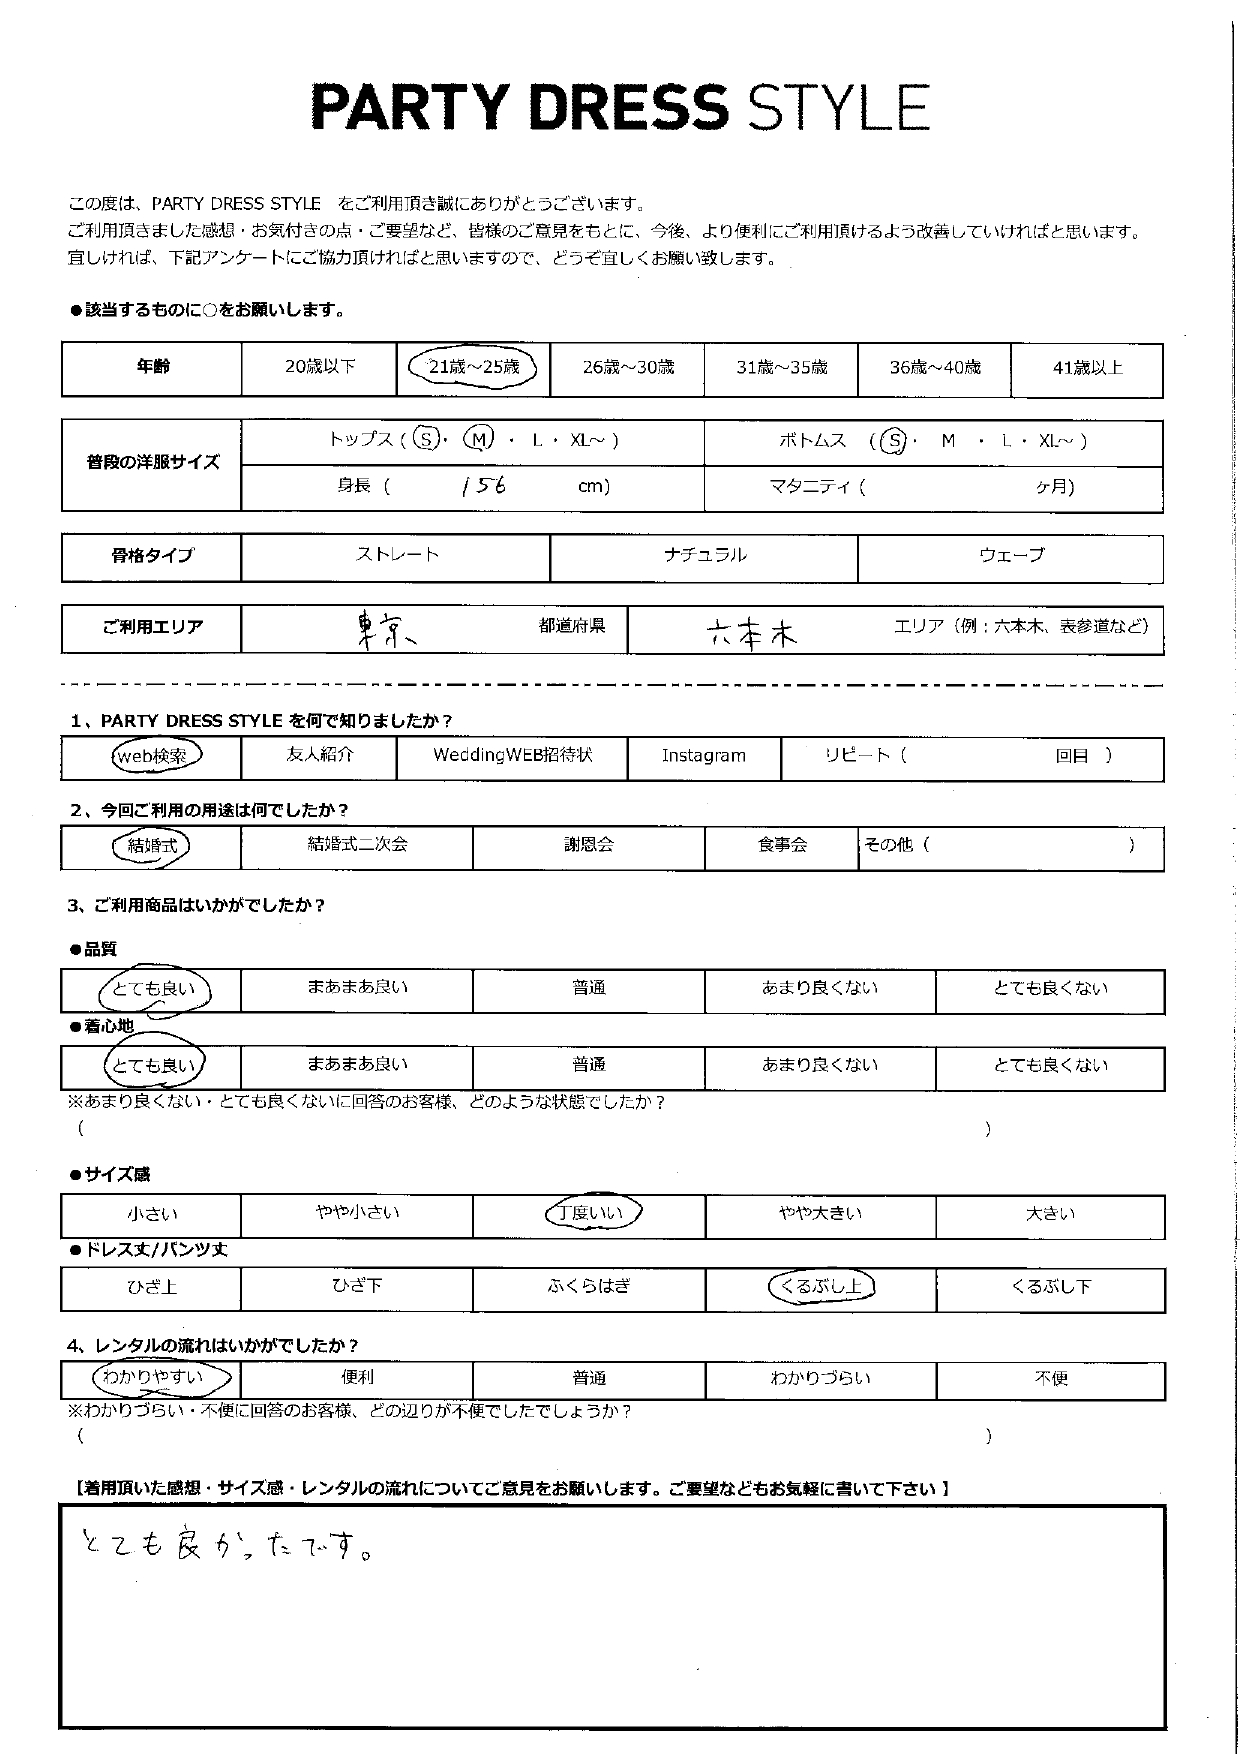 PARTY DRESS STYLE
この度は、PARTY DRESS STYLE　をご利用頂き誠にありがとうございます。
ご利用頂きました感想・お気付きの点・ご要望など、皆様のご意見をもとに、今後、より便利にご利用頂けるよう改善していければと思います。
宜しければ、下記アンケートにご協力頂ければと思いますので、どうぞ宜しくお願い致します。
●該当するものに○をお願いします。
年齢 20歳以下 21歳～25歳 26歳～30歳 31歳～35歳 36歳～40歳 41歳以上
普段の洋服サイズ トップス ( S ・ M ・ L ・ XL～ ) ボトムス ( S ・ M ・ L ・ XL～ )
身長 ( 156 cm) マタニティ ( ヶ月)
骨格タイプ ストレート ナチュラル ウェーブ
ご利用エリア 東京 都道府県 六本木 エリア（例：六本木、表参道など）
1、PARTY DRESS STYLE を何で知りましたか？
web検索 友人紹介 WeddingWEB招待状 Instagram リピート ( 回目 )
2、今回ご利用の用途は何でしたか？
結婚式 結婚式二次会 謝恩会 食事会 その他 ( )
3、ご利用商品はいかがでしたか？
●品質
とても良い まあまあ良い 普通 あまり良くない とても良くない
●着心地
とても良い まあまあ良い 普通 あまり良くない とても良くない
※あまり良くない・とても良くないに回答のお客様、どのような状態でしたか？
( )
●サイズ感
小さい やや小さい 丁度いい やや大きい 大きい
●ドレス丈/パンツ丈
ひざ上 ひざ下 ふくらはぎ くるぶし上 くるぶし下
4、レンタルの流れはいかがでしたか？
わかりやすい 便利 普通 わかりづらい 不便
※わかりづらい・不便に回答のお客様、どの辺りが不便でしたでしょうか？
( )
【着用頂いた感想・サイズ感・レンタルの流れについてご意見をお願いします。ご要望などもお気軽に書いて下さい】
とても良かったです。